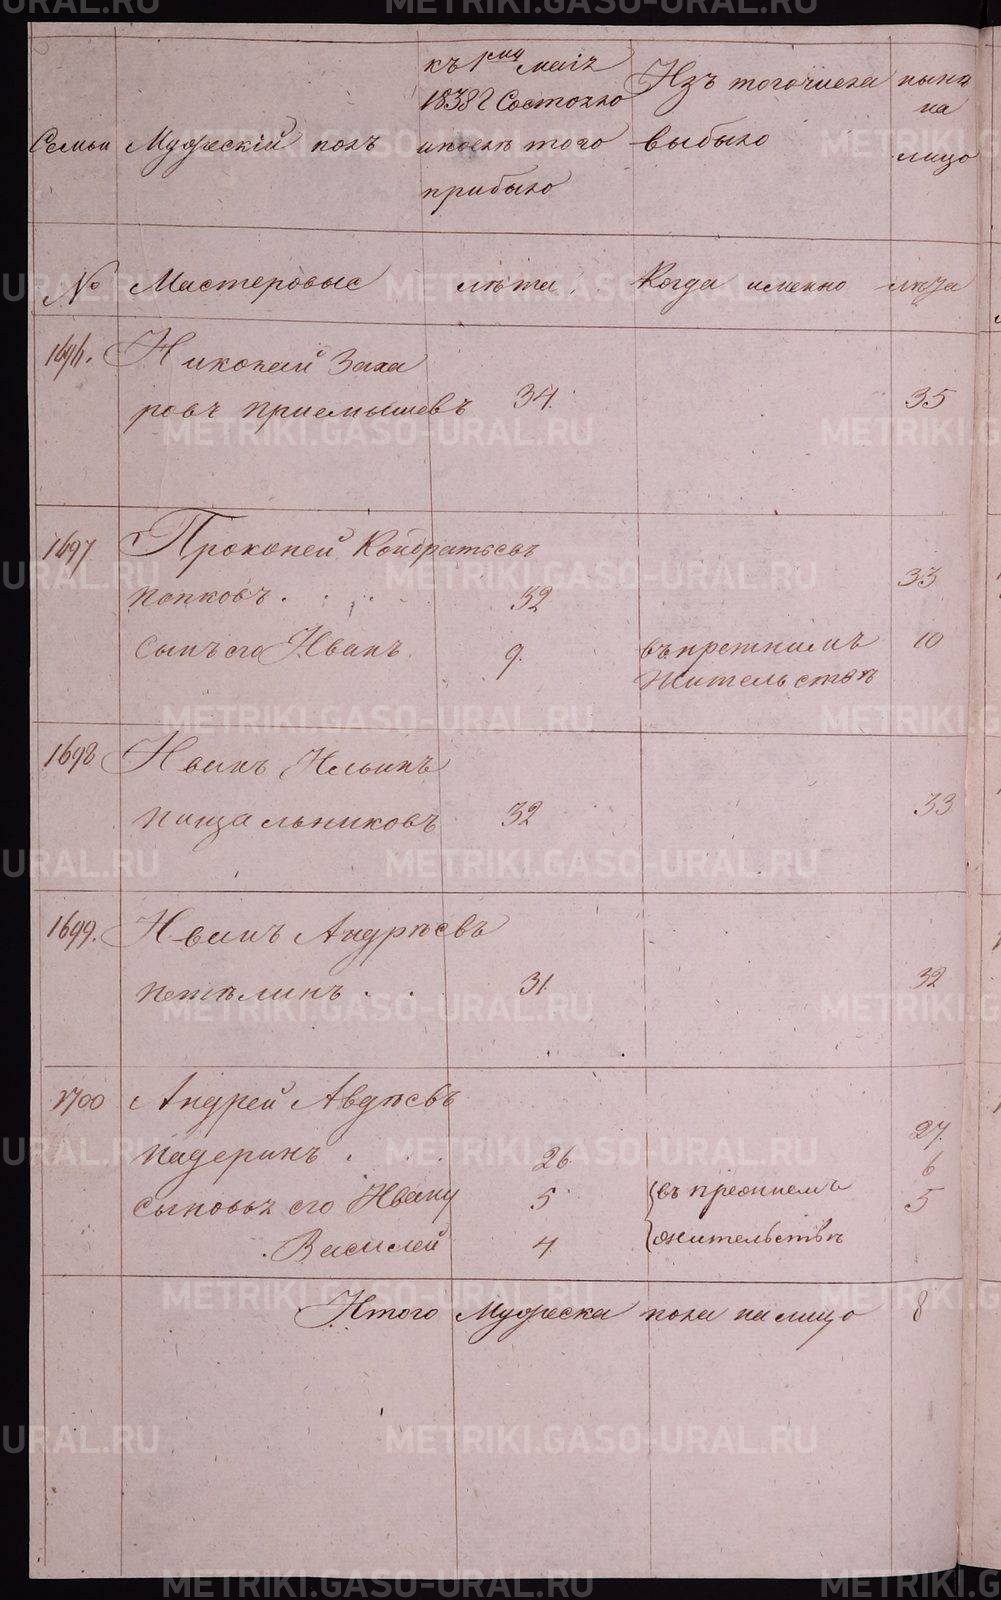 Семьи
Мужескій полъ
къ 1му маія
1838 г Состояло
и после того
прибыло
Изъ того числа
выбыло
нынѣ
на
лицо
№ Мастеровыс лѣта. Когда именно лѣта
1696. Николай Заха
ровъ Приемышевъ 34. 35
1697 Прокопей Кондратьевъ
Попковъ . . . . 32 33
Сынъ его Иванъ 9. въ прежнимъ 10
Жительствѣ
1698 Иванъ Ильинъ
Пищальниковъ 32 33
1699. Иванъ Андрѣевъ
Петѣлинъ . . 31. 32
1700 Андрей Авдѣевъ
Падеринъ . . . 26 27.
Сыновья его Иванъ 5 въ прежнемъ 6
Василей 4 жительствѣ 5
Итого Мужеска пола на лицо 8
METRIKI.GASO-URAL.RU